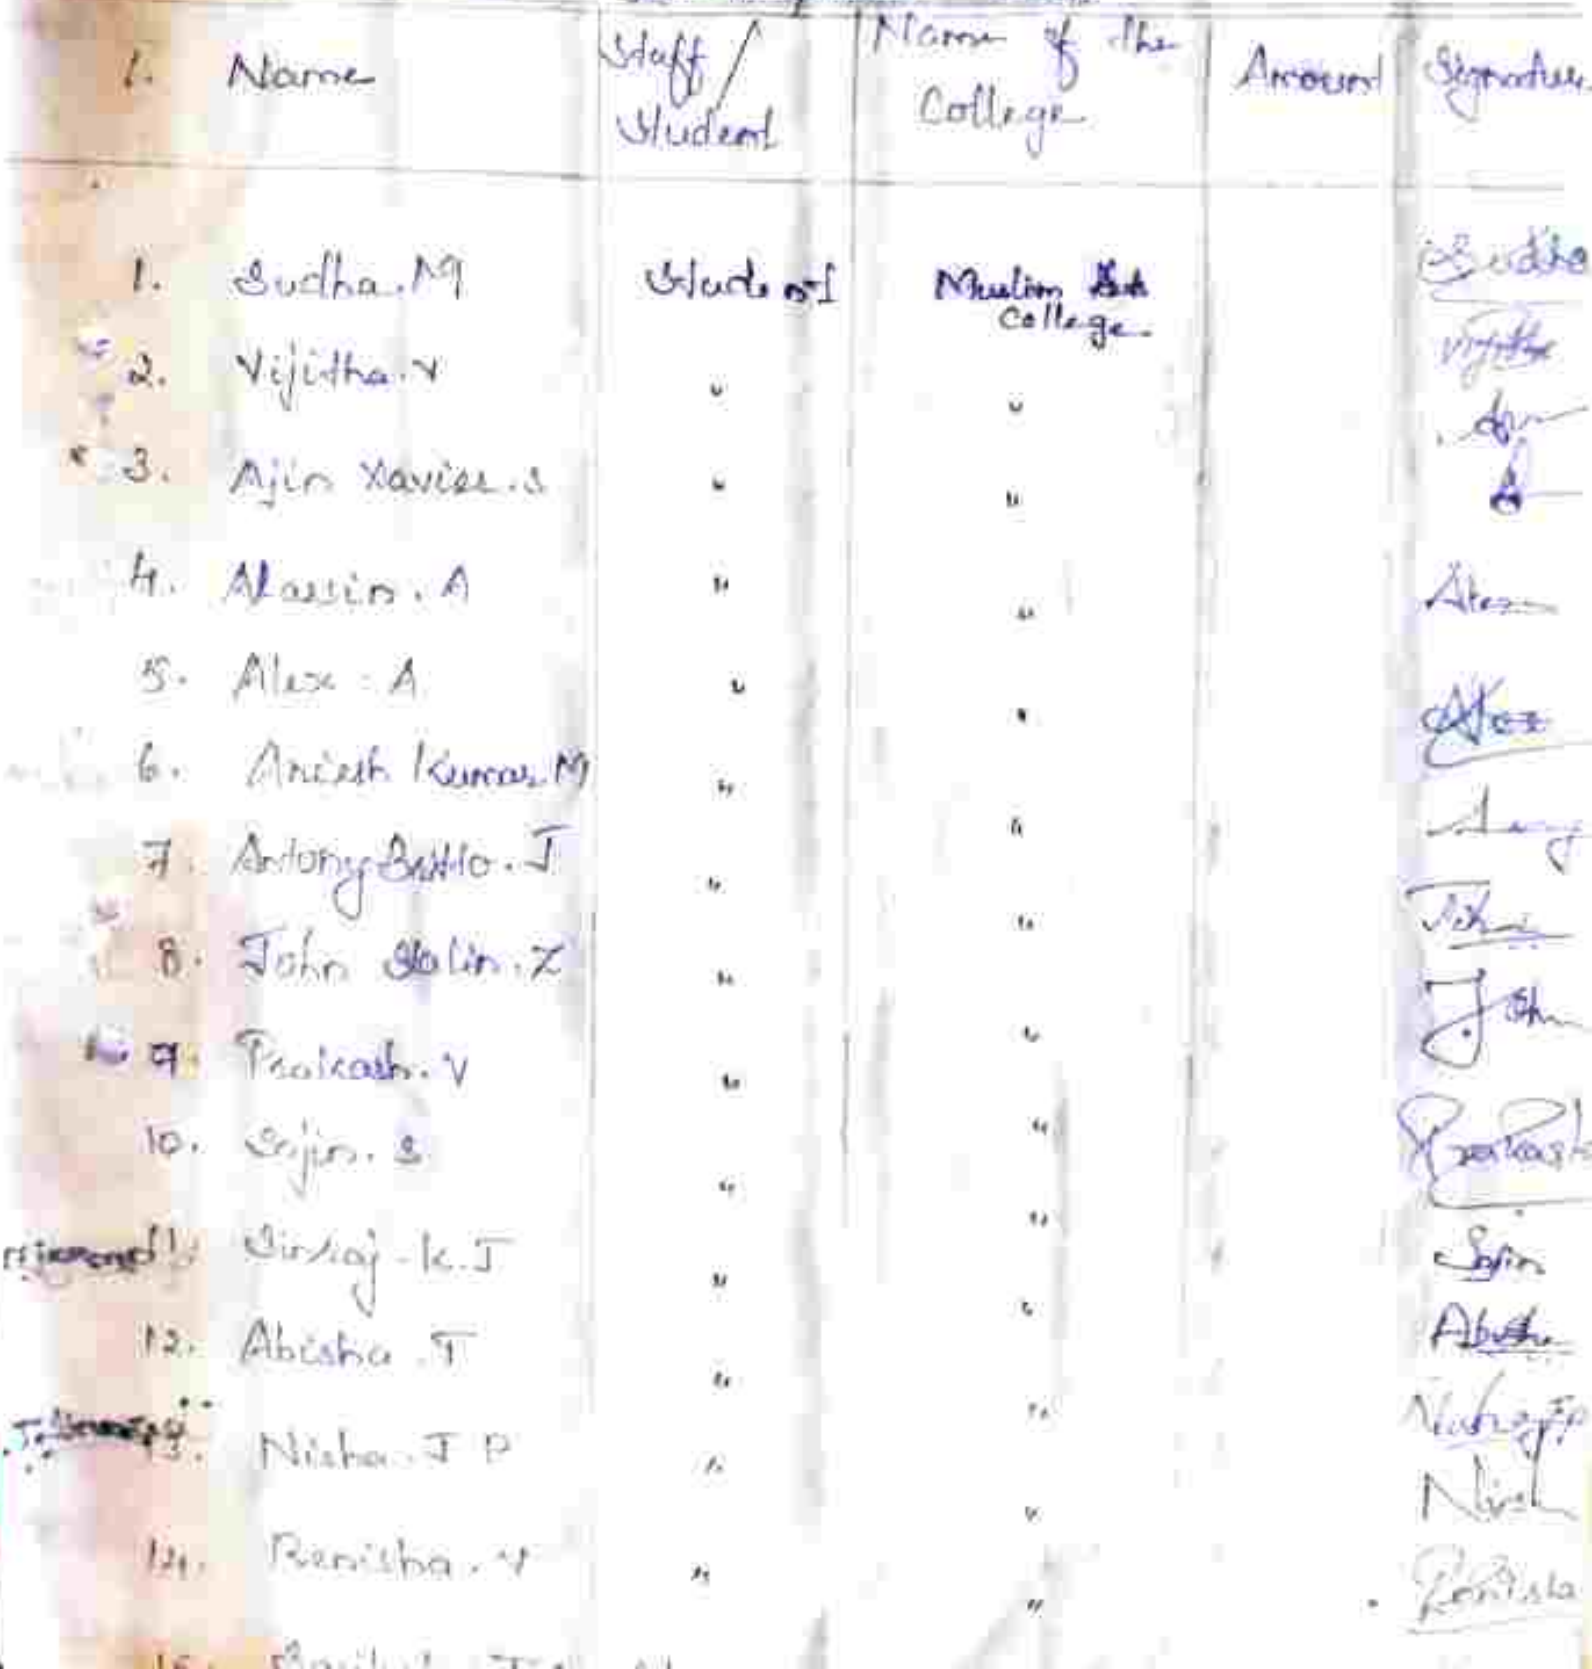 1. Name Staff / Student Name of the College Amount Signature
1. Sudha. M Student Muslim Arts College. Sudha
2. Vijitha. V " " Vijitha
3. Ajin Xavier. S " "
4. A. A " "
5. Alex. A " " Alex
6. Anish Kumar. M " "
7. Antony Britto. J " "
8. John Stalin. Z " " John
9. Prakash. V " " Prakash
10. Sajin. S " " Sajin
11. K. J " "
12. Abisha. T " " Abisha
13. Nisha. J P " " Nisha
14. Renisha. V " " Renisha
15.